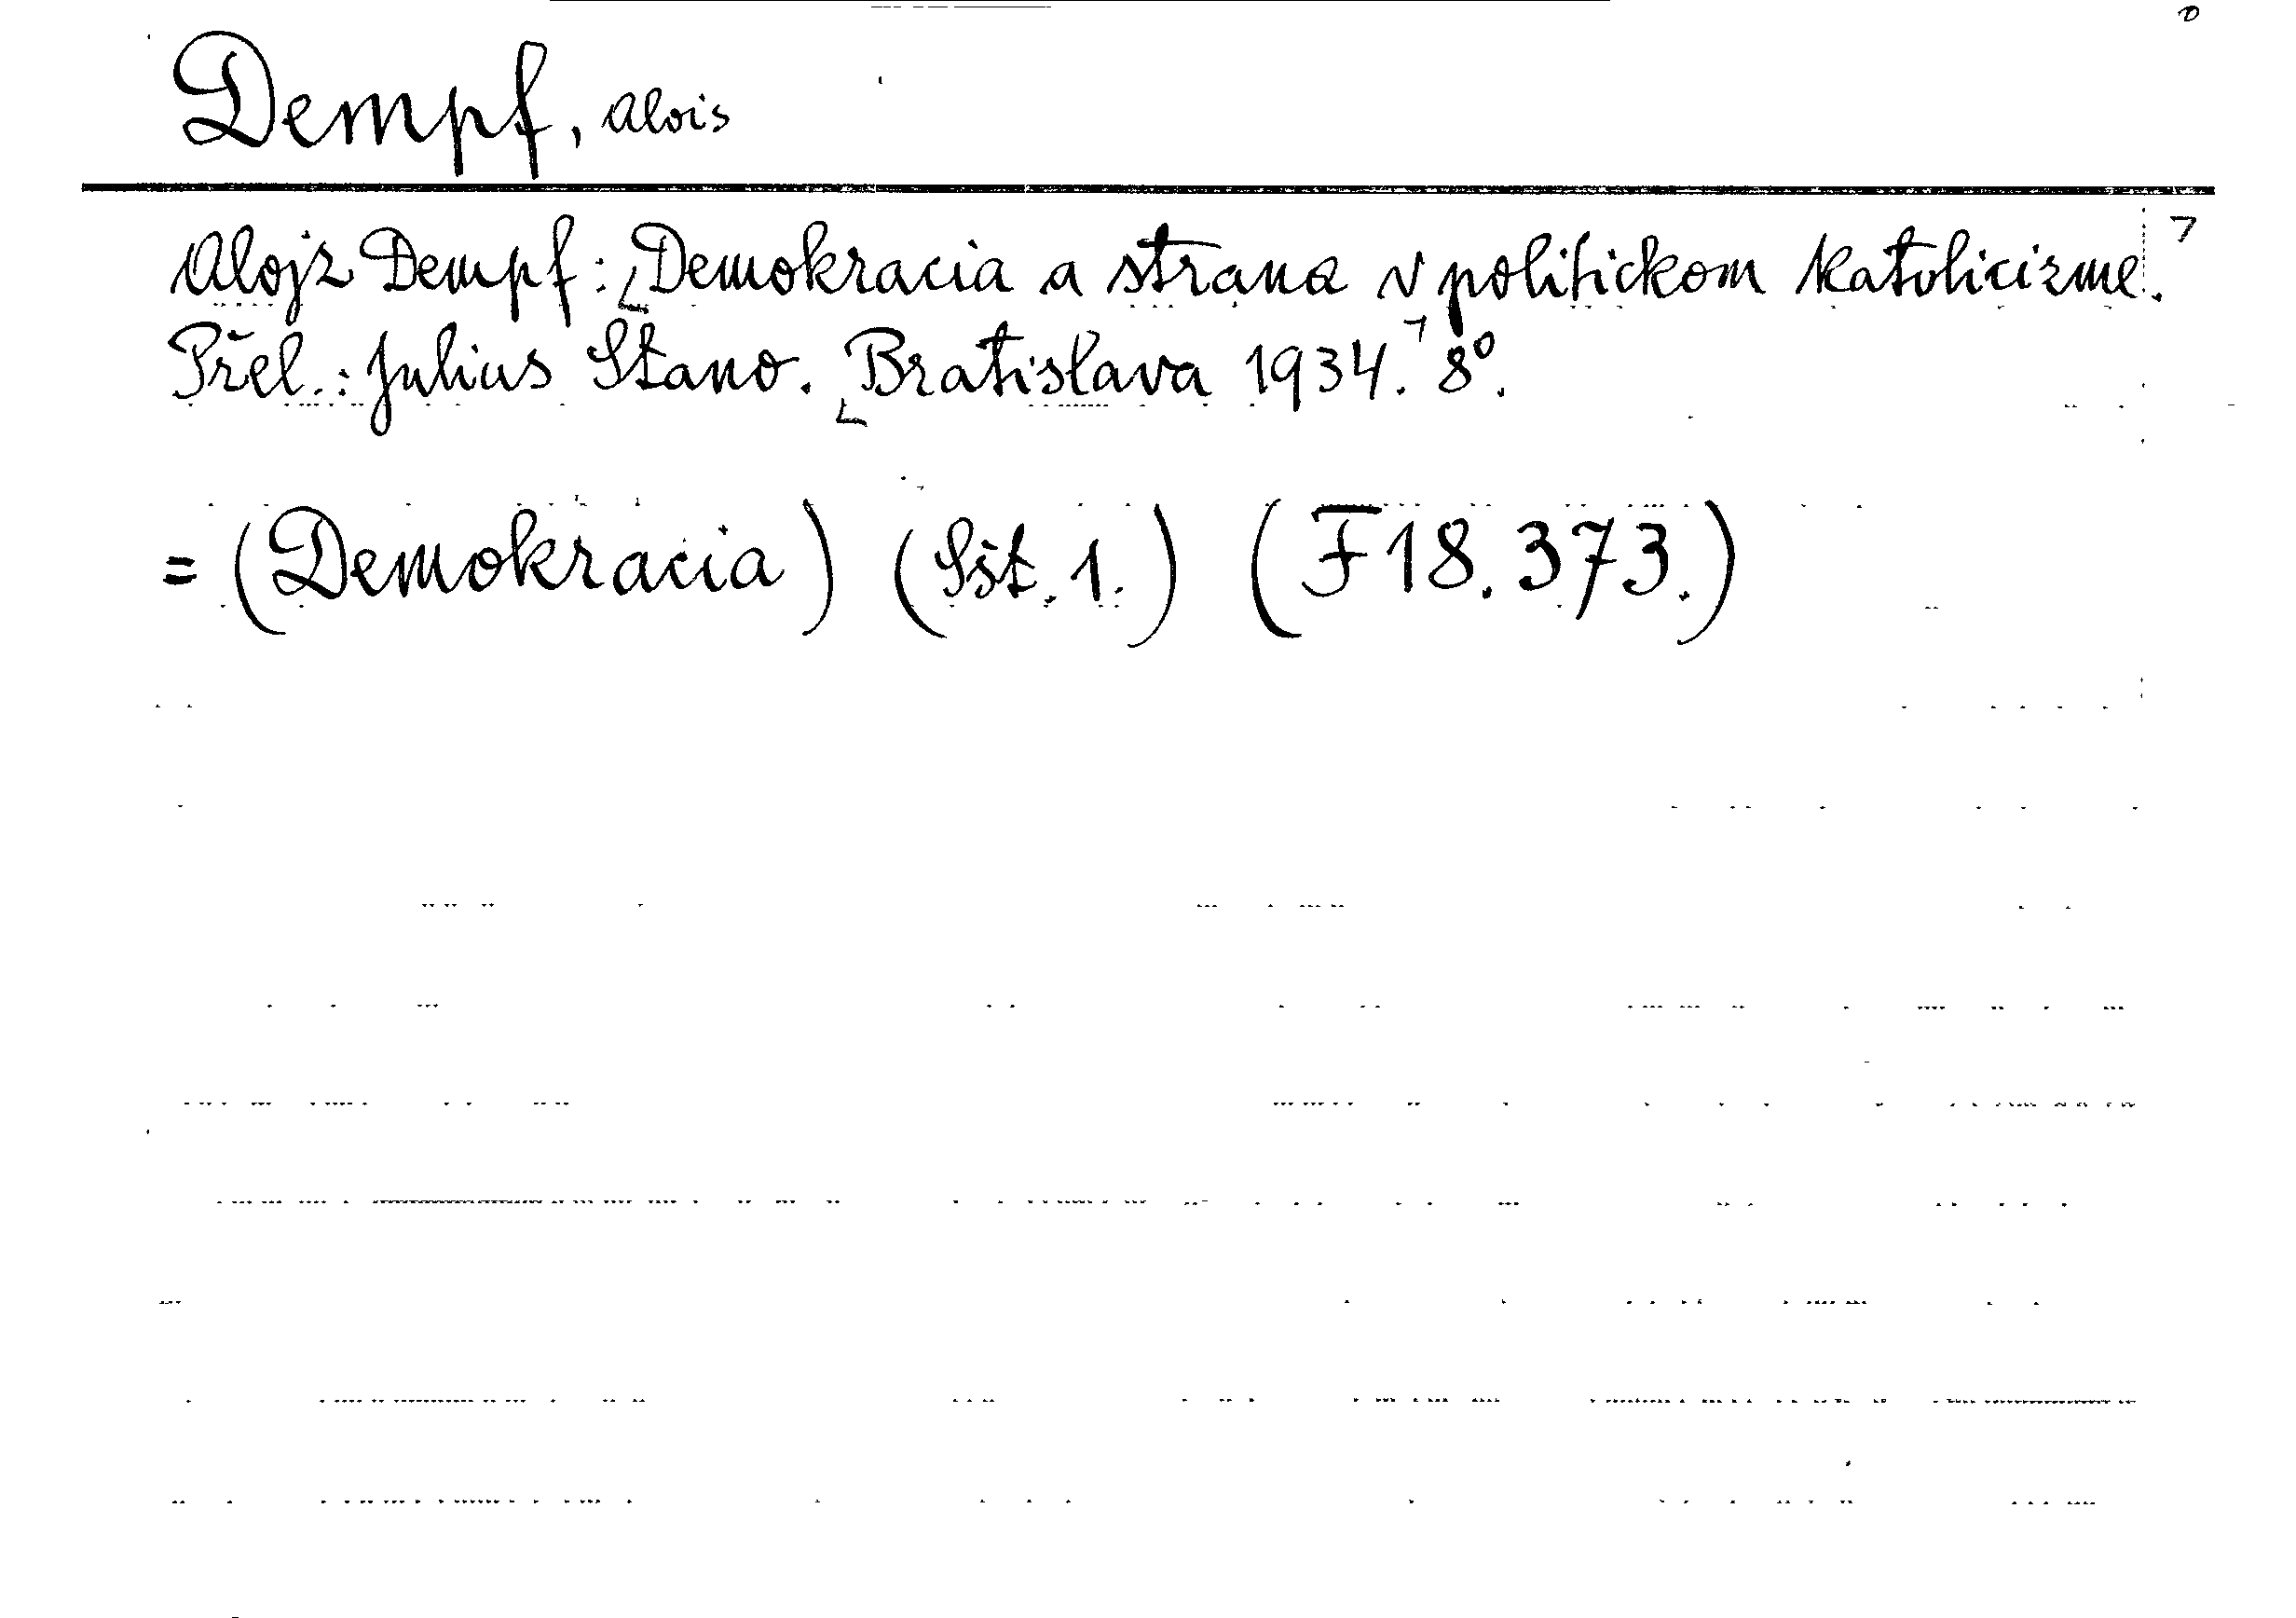 Dempf, Alois
Alojz Dempf: Demokracia a strana v politickom katolicizme.
Přel.: Julius Stano. Bratislava 1934. 8°.
= (Demokracia) (Sšt. 1.) (F 18.373.)